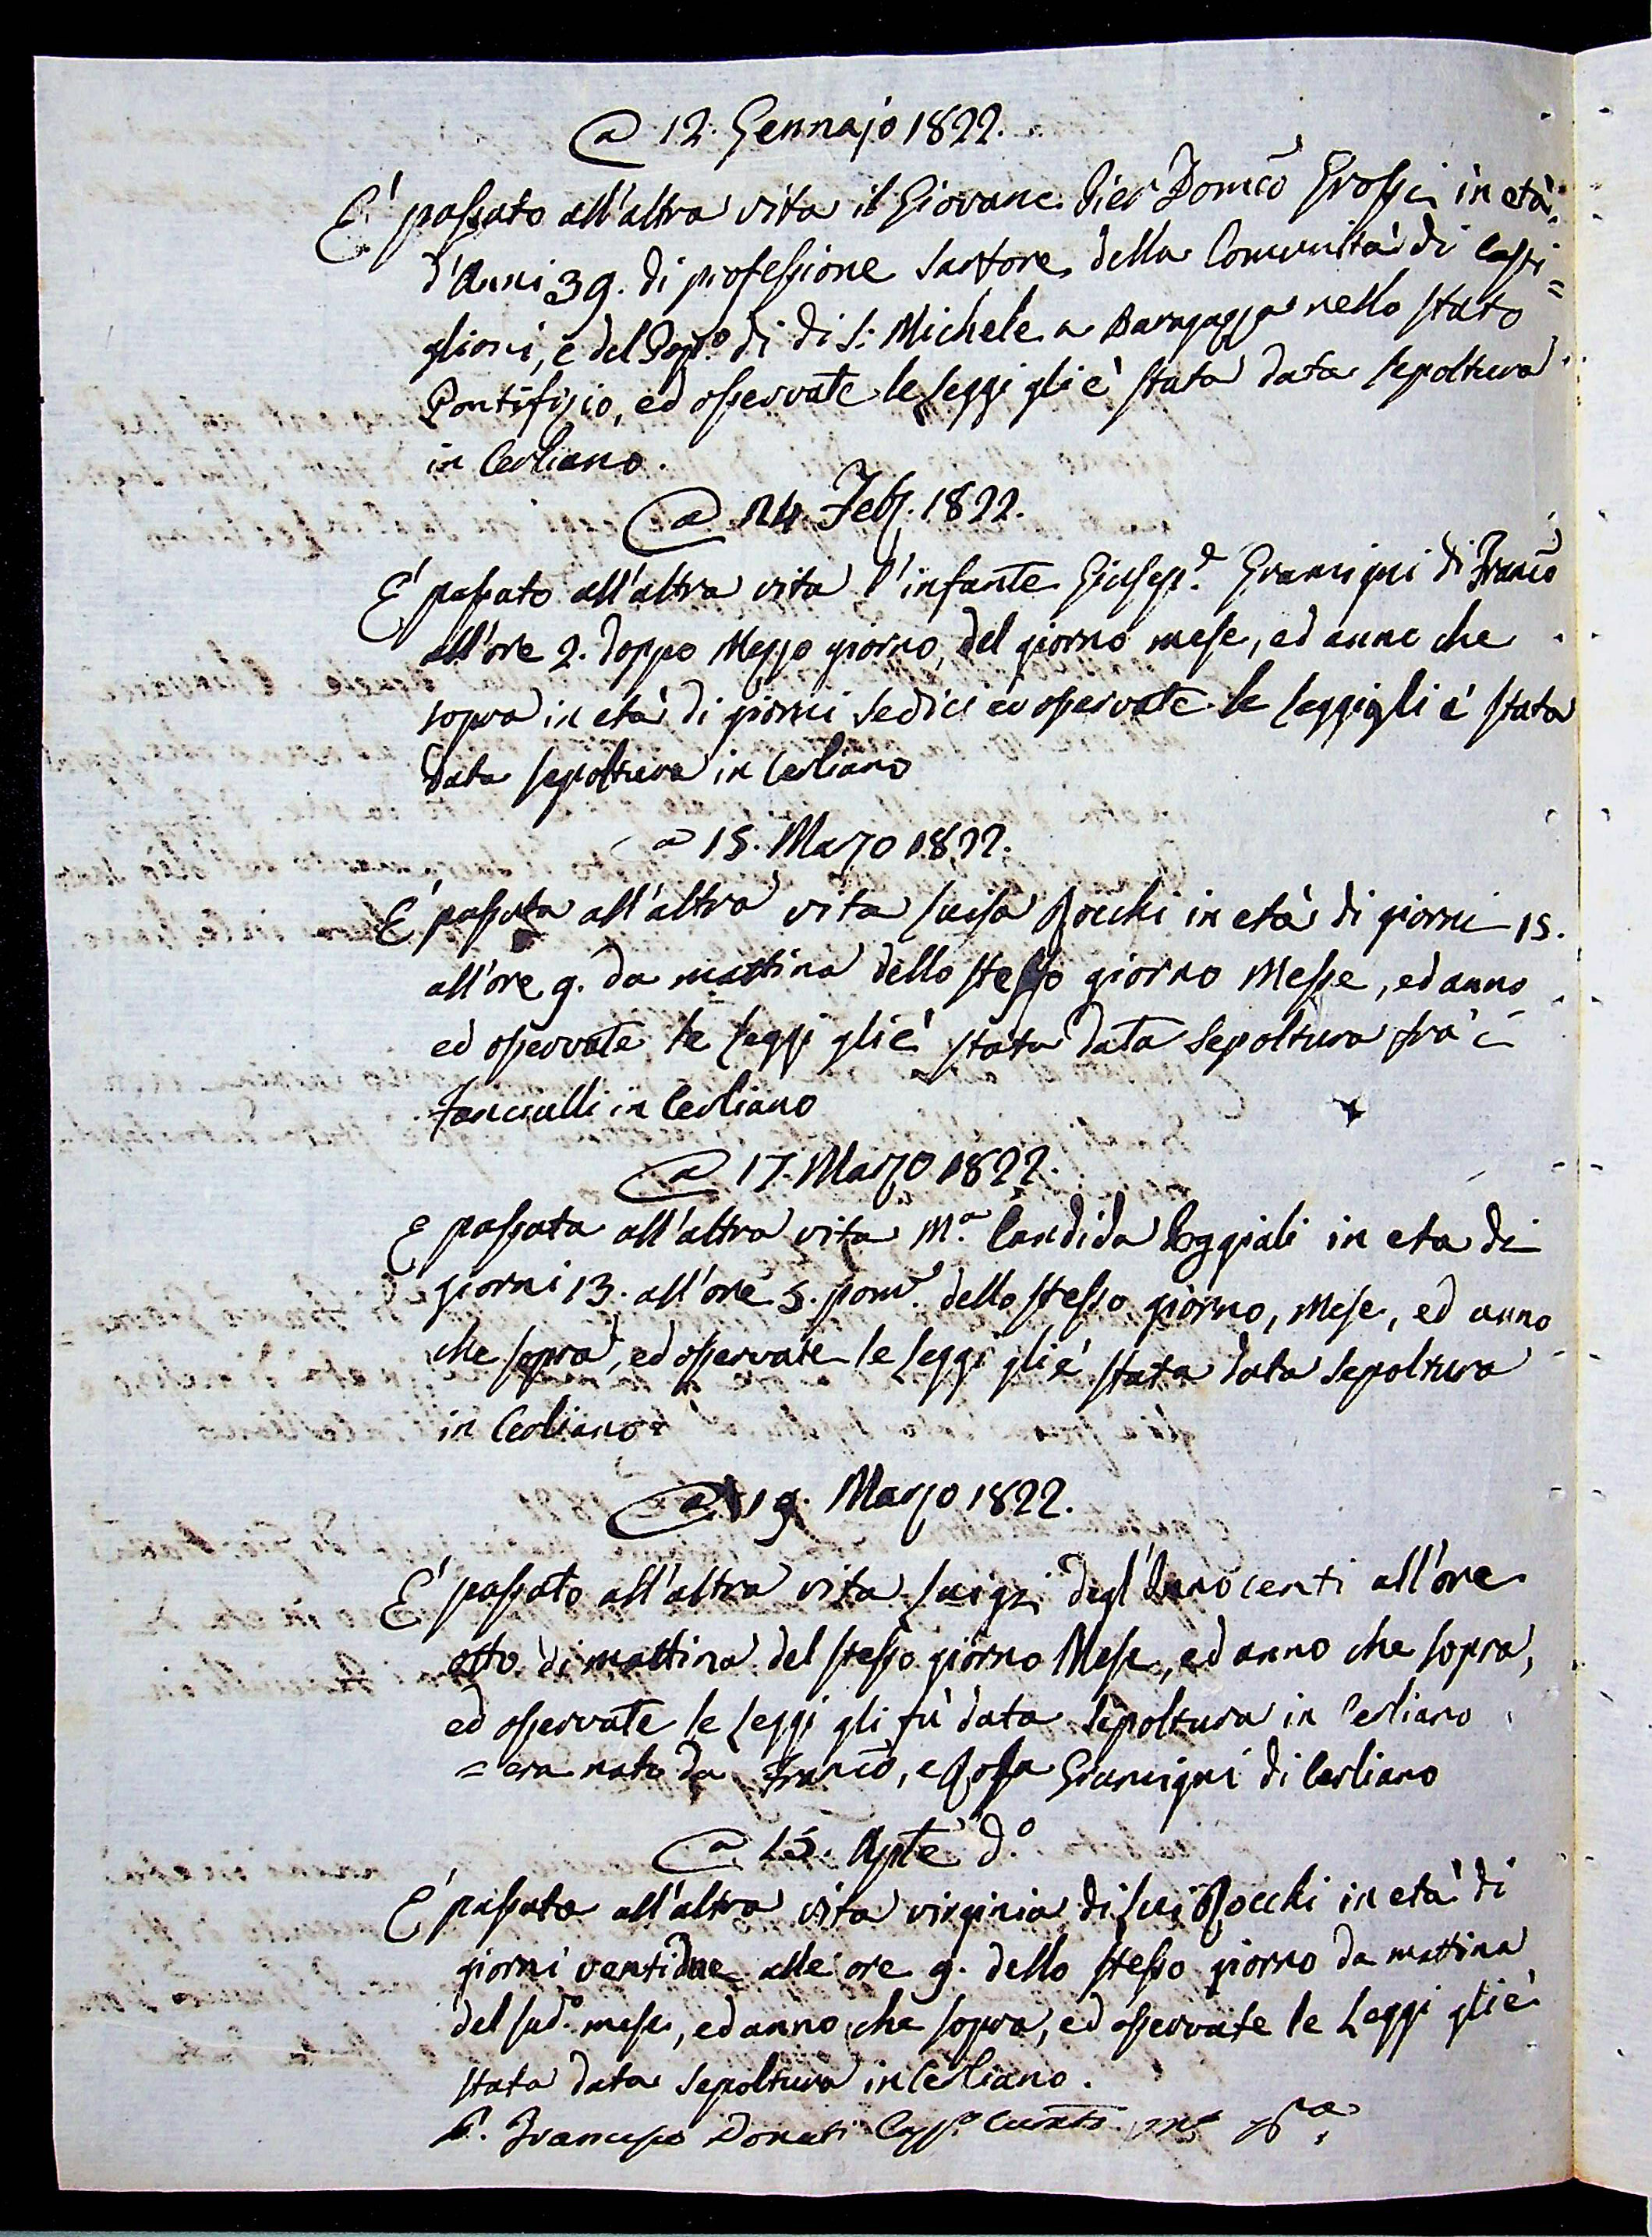 a 12. Gennajo 1822.
E' passato all'altra vita il Giovane Pier Domco Grossi in età
d'Anni 39. di professione Sartore della Comunità di Casti=
glioni, e del Popo. di di S: Michele a Baragazza nello stato
Pontifizio, ed osservate le Leggi gli è stata data sepoltura
in Cerliano.
a 24. Feb. 1822.
E' passato all'altra vita l'infante Giusepe. Gramigni di Franco
all'ore 2. doppo Mezzo giorno, del giorno mese, ed anno che
sopra in età di giorni sedici ed osservate le Leggi gli è stata
data sepoltura in Cerliano
a 15. Marzo 1822.
E' passata all'altra vita Luisa Rocchi in età di giorni 15.
all'ore 9. da mattina dello stesso giorno Messe, ed anno
ed osservate le Leggi gli è stata data Sepoltura frà i
Fanciulli in Cerliano
a 17. Marzo 1822.
E passata all'altra vita Ma. Candida Poggiali in eta di
giorni 13. all'ore 5. pome. dello stesso giorno, Mese, ed anno
che sopra, ed osservate le Leggi gli è stata data Sepoltura
in Cerliano=
a 19. Marzo 1822.
E' passato all'altra vita Luigi degl'Innocenti all'ore
otto di mattina del stesso giorno Mese, ed anno che sopra,
ed osservate le Leggi gli fù data Sepoltura in Cerliano
= era nato da Franco, e Rosa Gramigni di Cerliano
a 15. Aple do
E' passata all'altra vita virginia di Lui Rocchi in età di
giorni ventidue alle ore 9. dello stesso giorno da mattina
del sudo. mese, ed anno che sopra, ed osservate le Leggi gli è
stata data Sepoltura in Cerliano.
P. Francesco Donati Capp.o Curato